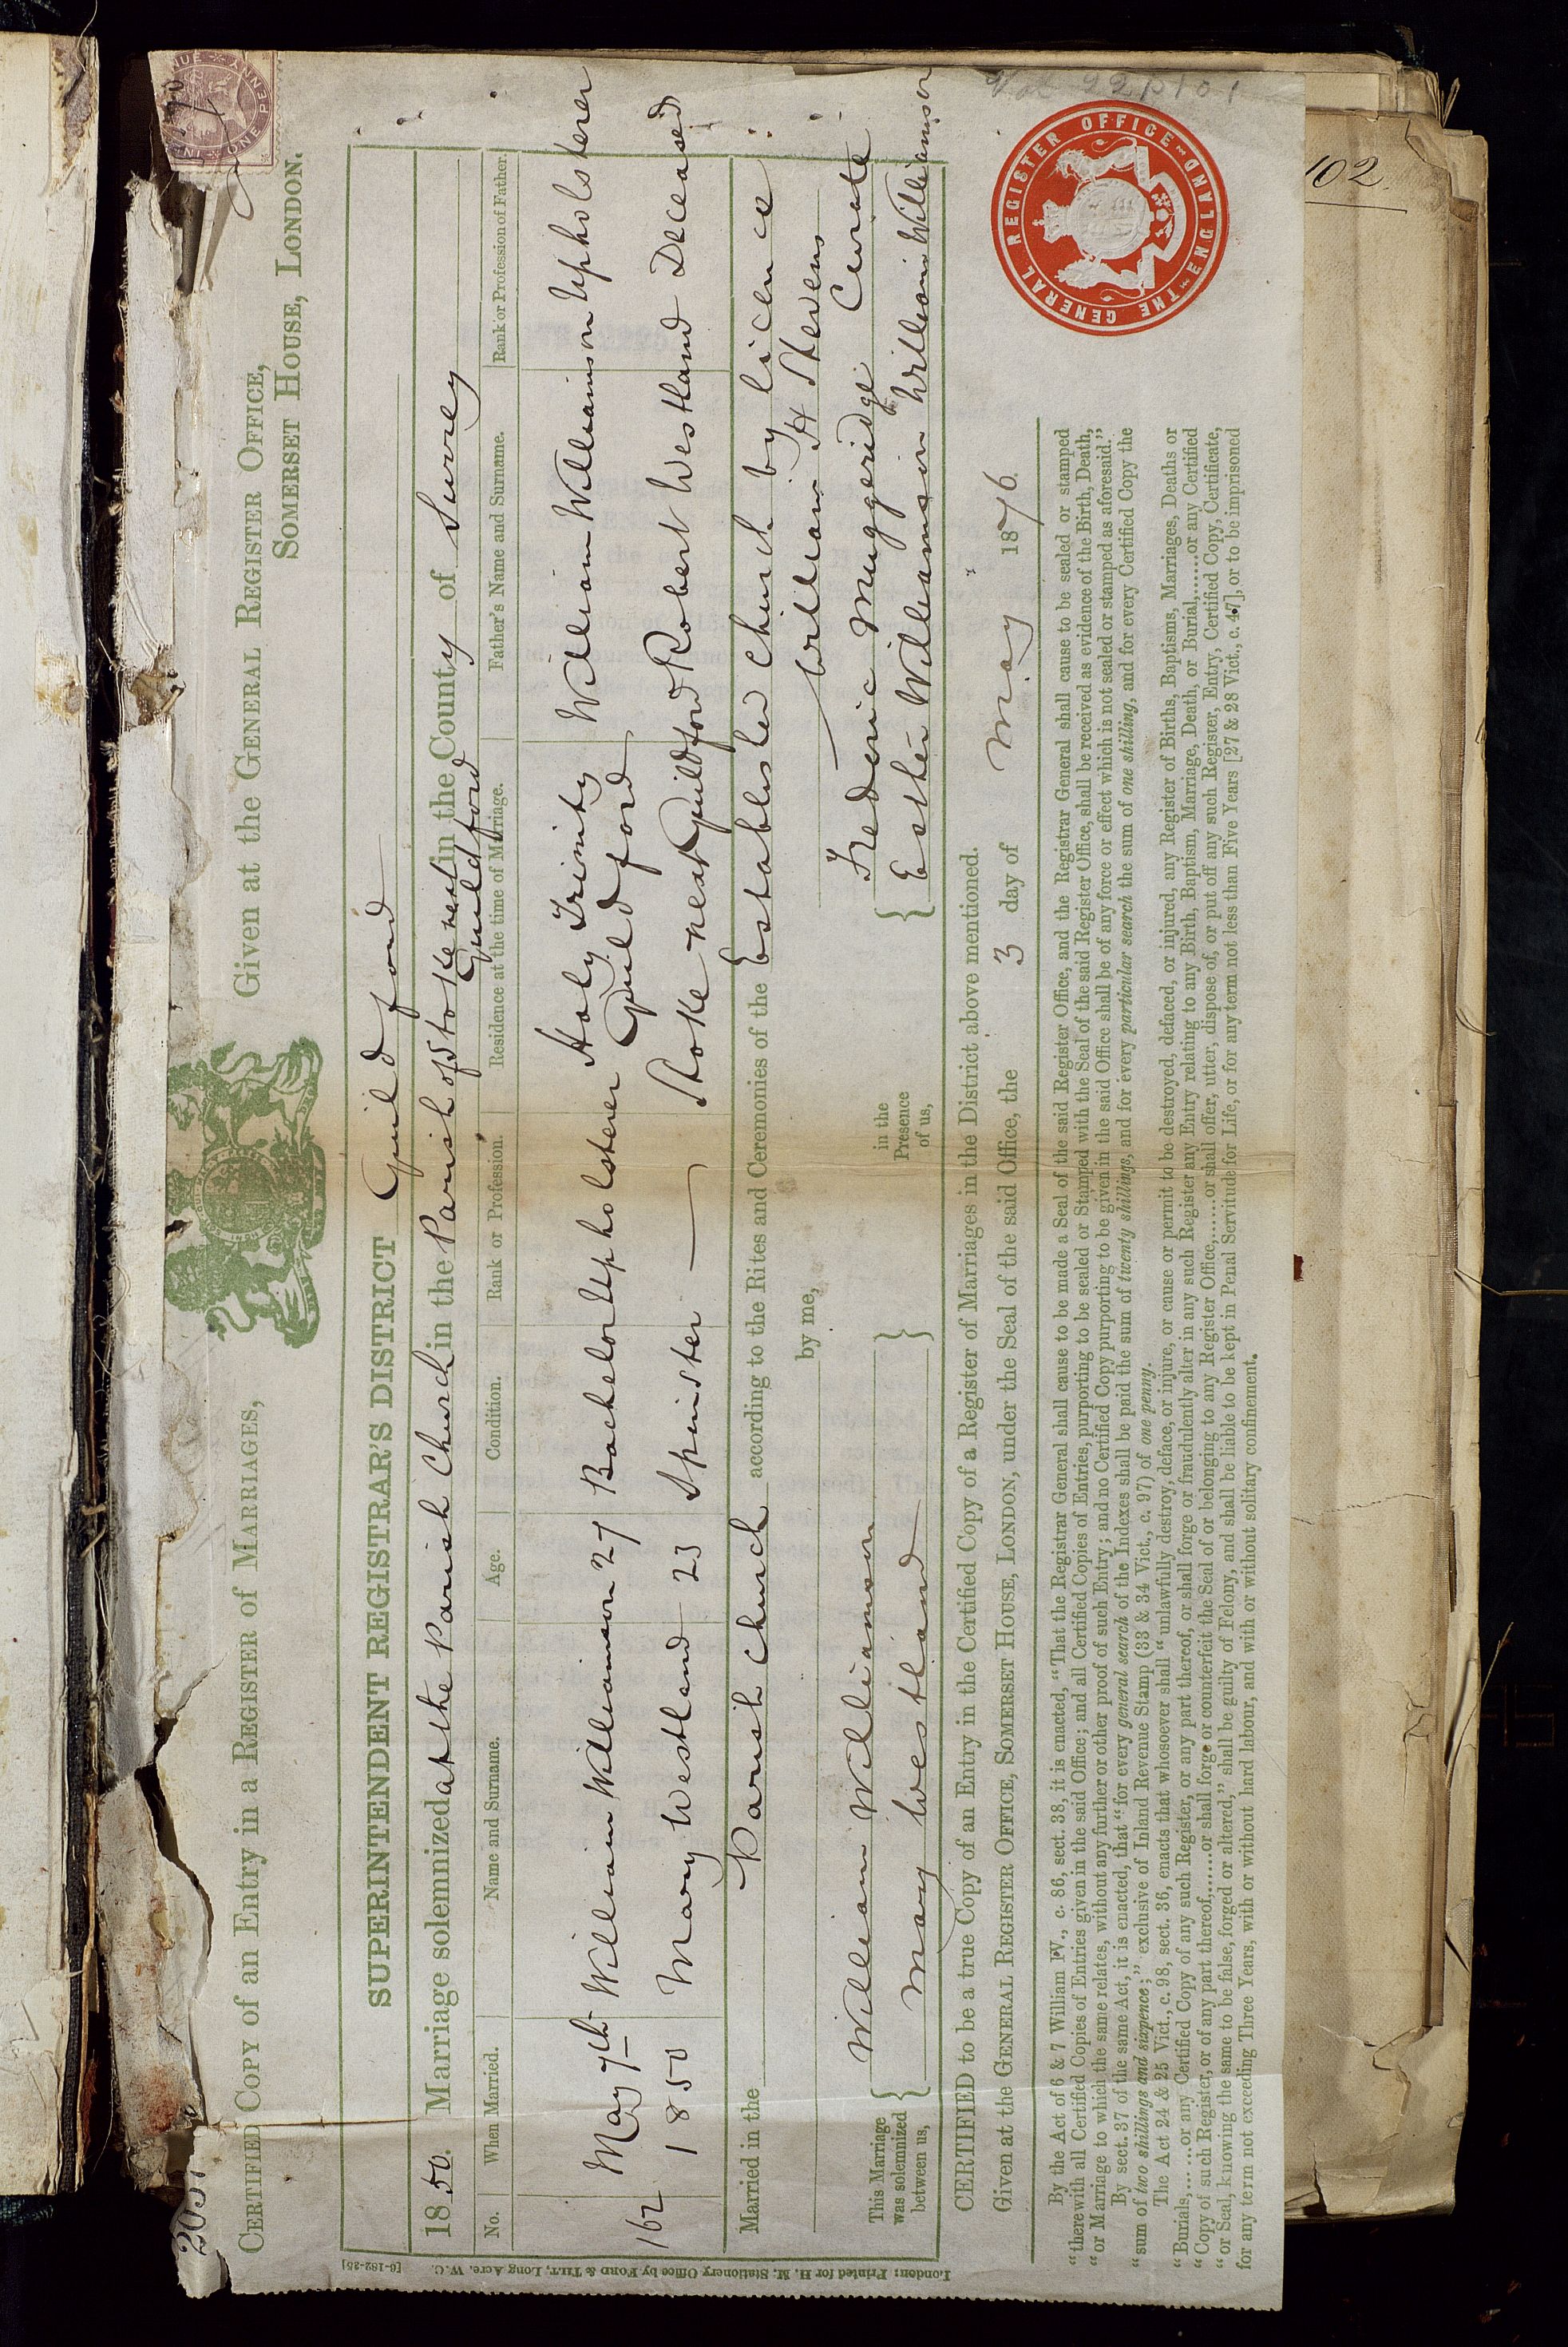 CERTIFIED COPY of an Entry in a REGISTER OF MARRIAGES,
Given at the GENERAL REGISTER OFFICE,
SOMERSET HOUSE, LONDON.
ONE PENNY
SUPERINTENDENT REGISTRAR'S DISTRICT Guildford
1850. Marriage solemnized at the Parish Church in the Parish of Stoke next Guildford in the County of Surrey
No. When Married. Name and Surname. Age. Condition. Rank or Profession. Residence at the time of Marriage. Father's Name and Surname. Rank or Profession of Father.
162 May 7th 1850 William Williamson 27 Bachelor Upholsterer Holy Trinity Guildford William Williamson Upholsterer
Mary Westland 23 Spinster — Stoke next Guildford Robert Westland Deceased
Married in the Parish Church according to the Rites and Ceremonies of the Established Church by licence
by me, William H Stevens
Curate
This Marriage was solemnized between us, { William Williamson
Mary Westland } in the Presence of us, { Frederic Muggeridge
Esther Williamson William Williamson
CERTIFIED to be a true Copy of an Entry in the Certified Copy of a Register of Marriages in the District above mentioned.
Given at the GENERAL REGISTER OFFICE, SOMERSET HOUSE, LONDON, under the Seal of the said Office, the 3 day of May 1876.
By the Act of 6 & 7 William IV., c. 86, sect. 38, it is enacted, "That the Registrar General shall cause to be made a Seal of the said Register Office, and the Registrar General shall cause to be sealed or stamped
"therewith all Certified Copies of Entries given in the said Office; and all Certified Copies of Entries, purporting to be sealed or Stamped with the Seal of the said Register Office, shall be received as evidence of the Birth, Death,
"or Marriage to which the same relates, without any further or other proof of such Entry; and no Certified Copy purporting to be given in the said Office shall be of any force or effect which is not sealed or stamped as aforesaid."
By sect. 37 of the same Act, it is enacted, that "for every general search of the Indexes shall be paid the sum of twenty shillings, and for every particular search the sum of one shilling, and for every Certified Copy the
"sum of two shillings and sixpence;" exclusive of Inland Revenue Stamp (33 & 34 Vict., c. 97) of one penny.
The Act 24 & 25 Vict., c. 98, sect. 36, enacts that whosoever shall "unlawfully destroy, deface, or injure, or cause or permit to be destroyed, defaced, or injured, any Register of Births, Baptisms, Marriages, Deaths or
"Burials,......or any Certified Copy of any such Register, or any part thereof, or shall forge or fraudulently alter in any such Register any Entry relating to any Birth, Baptism, Marriage, Death, or Burial,......or any Certified
"Copy of such Register, or of any part thereof,......or shall forge or counterfeit the Seal of or belonging to any Register Office,......or shall offer, utter, dispose of, or put off any such Register, Entry, Certified Copy, Certificate,
"or Seal, knowing the same to be false, forged or altered," shall be guilty of Felony, and shall be liable to be kept in Penal Servitude for Life, or for any term not less than Five Years [27 & 28 Vict., c. 47], or to be imprisoned
for any term not exceeding Three Years, with or without hard labour, and with or without solitary confinement.
THE GENERAL REGISTER OFFICE ENGLAND
London: Printed for H. M. Stationery Office by FORD & TILT, Long Acre, W.C.
[6-182-25]
Vol 22 p 101
102